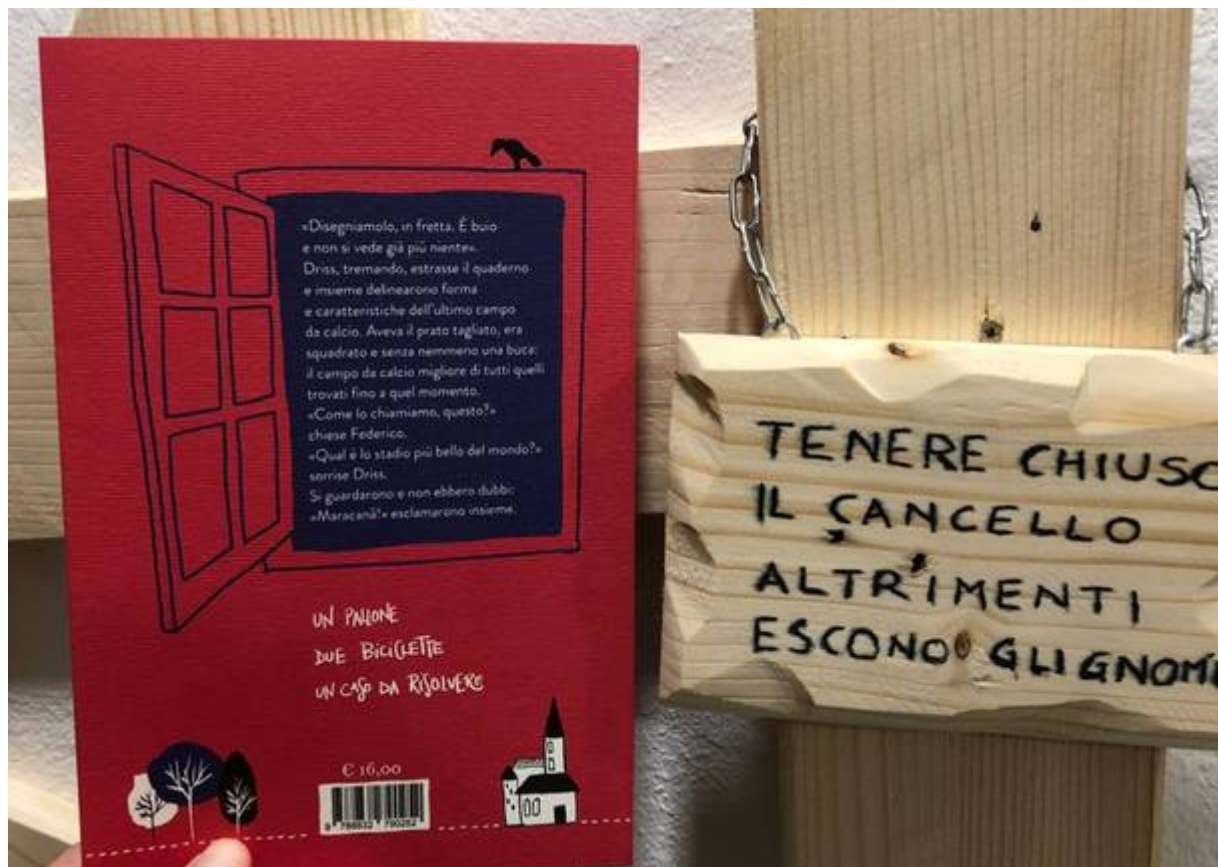 «Disegniamolo, in fretta. È buio
e non si vede già più niente».
Driss, tremando, estrasse il quaderno
e insieme delinearono forma
e caratteristiche dell'ultimo campo
da calcio. Aveva il prato tagliato, era
squadrato e senza nemmeno una buca:
il campo da calcio migliore di tutti quelli
trovati fino a quel momento.
«Come lo chiamiamo, questo?»
chiese Federico.
«Qual è lo stadio più bello del mondo?»
sorrise Driss.
Si guardarono e non ebbero dubbi:
«Maracanã!» esclamarono insieme.
UN PALLONE
DUE BICICLETTE
UN CASO DA RISOLVERE
€ 16,00
TENERE CHIUSO
IL CANCELLO
ALTRIMENTI
ESCONO GLI GNOMI